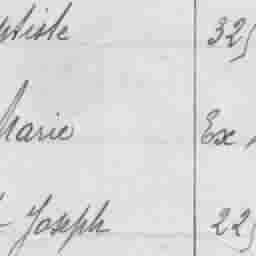 ptiste 325
Marie Ex
- Joseph 225